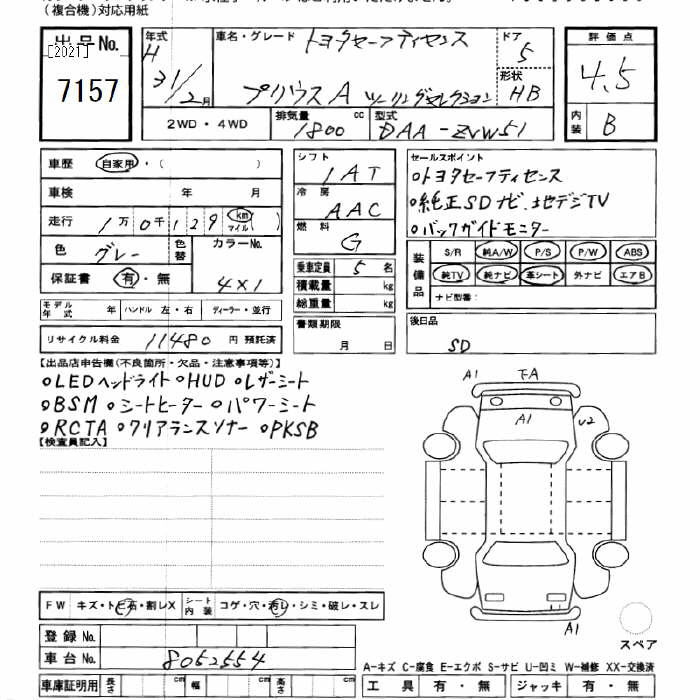 (複合機)対応用紙
出品No.
[2021]
7157
年式 H 31/2月
車名・グレード トヨタセーフティセンス
プリウス A ツーリングセレクション
ドア 5
形状 HB
評価点 4.5
内装 B
2WD・4WD
排気量 1800 cc
型式 DAA-ZVW51
車歴 自家用・( )
車検 年 月
走行 1万0千129 km マイル( )
色 グレー 色替 カラーNo. 4X1
保証書 有・無
モデル年式 年 ハンドル 左・右 ディーラー・並行
リサイクル料金 11480 円 預託済
シフト IAT
冷房 AAC
燃料 G
乗車定員 5 名
積載量 kg
総重量 kg
書類期限
月 日
セールスポイント
・トヨタセーフティセンス
・純正SDナビ.地デジTV
・バックガイドモニター
装備品 S/R 純A/W P/S P/W ABS
純TV 純ナビ 革シート 外ナビ エアB
ナビ型番:
後日品
SD
【出品店申告欄(不良箇所・欠品・注意事項等)】
・LEDヘッドライト ・HUD ・レザーシート
・BSM ・シートヒーター ・パワーシート
・RCTA ・クリアランスソナー ・PKSB
【検査員記入】
A1 下A
A1
U2
A1
スペア
FW キズ・トビ石・割レX シート内装 コゲ・穴・汚レ・シミ・破レ・スレ
登録No.
車台No. 8052554
A-キズ C-腐食 E-エクボ S-サビ U-凹ミ W-補修 XX-交換済
車庫証明用 長さ cm 幅 cm 高さ cm
工具 有・無 ジャッキ 有・無